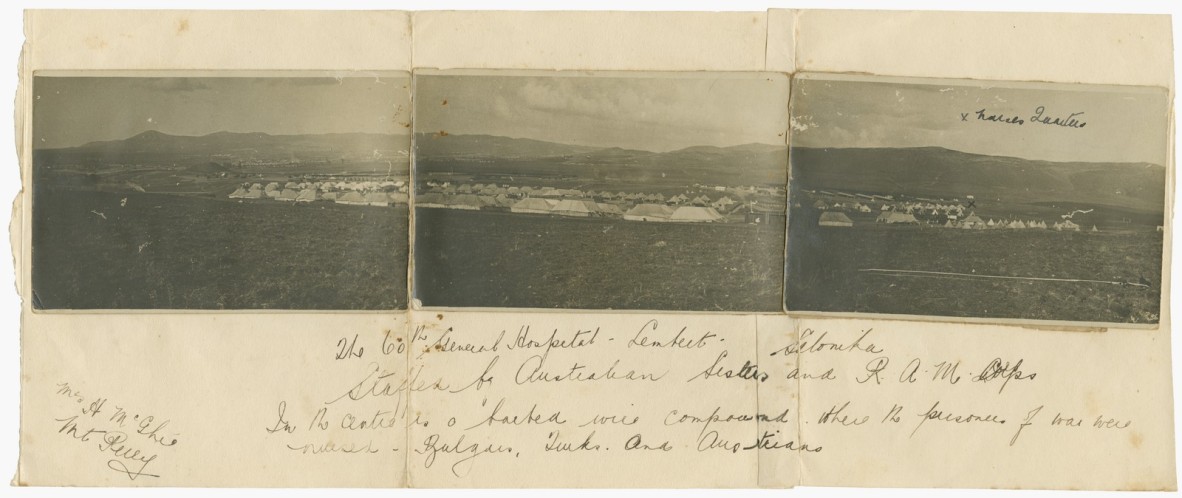 x Nurses Quarters
The 60th General Hospital - Lembert - Salonika
Staffed by Australian Sisters and R. A. M. Corps
In the centre is a barbed wire compound where the prisoners of war were
nursed - Bulgars, Turks. and Austrians
Mrs H McGhie
Mt Perry